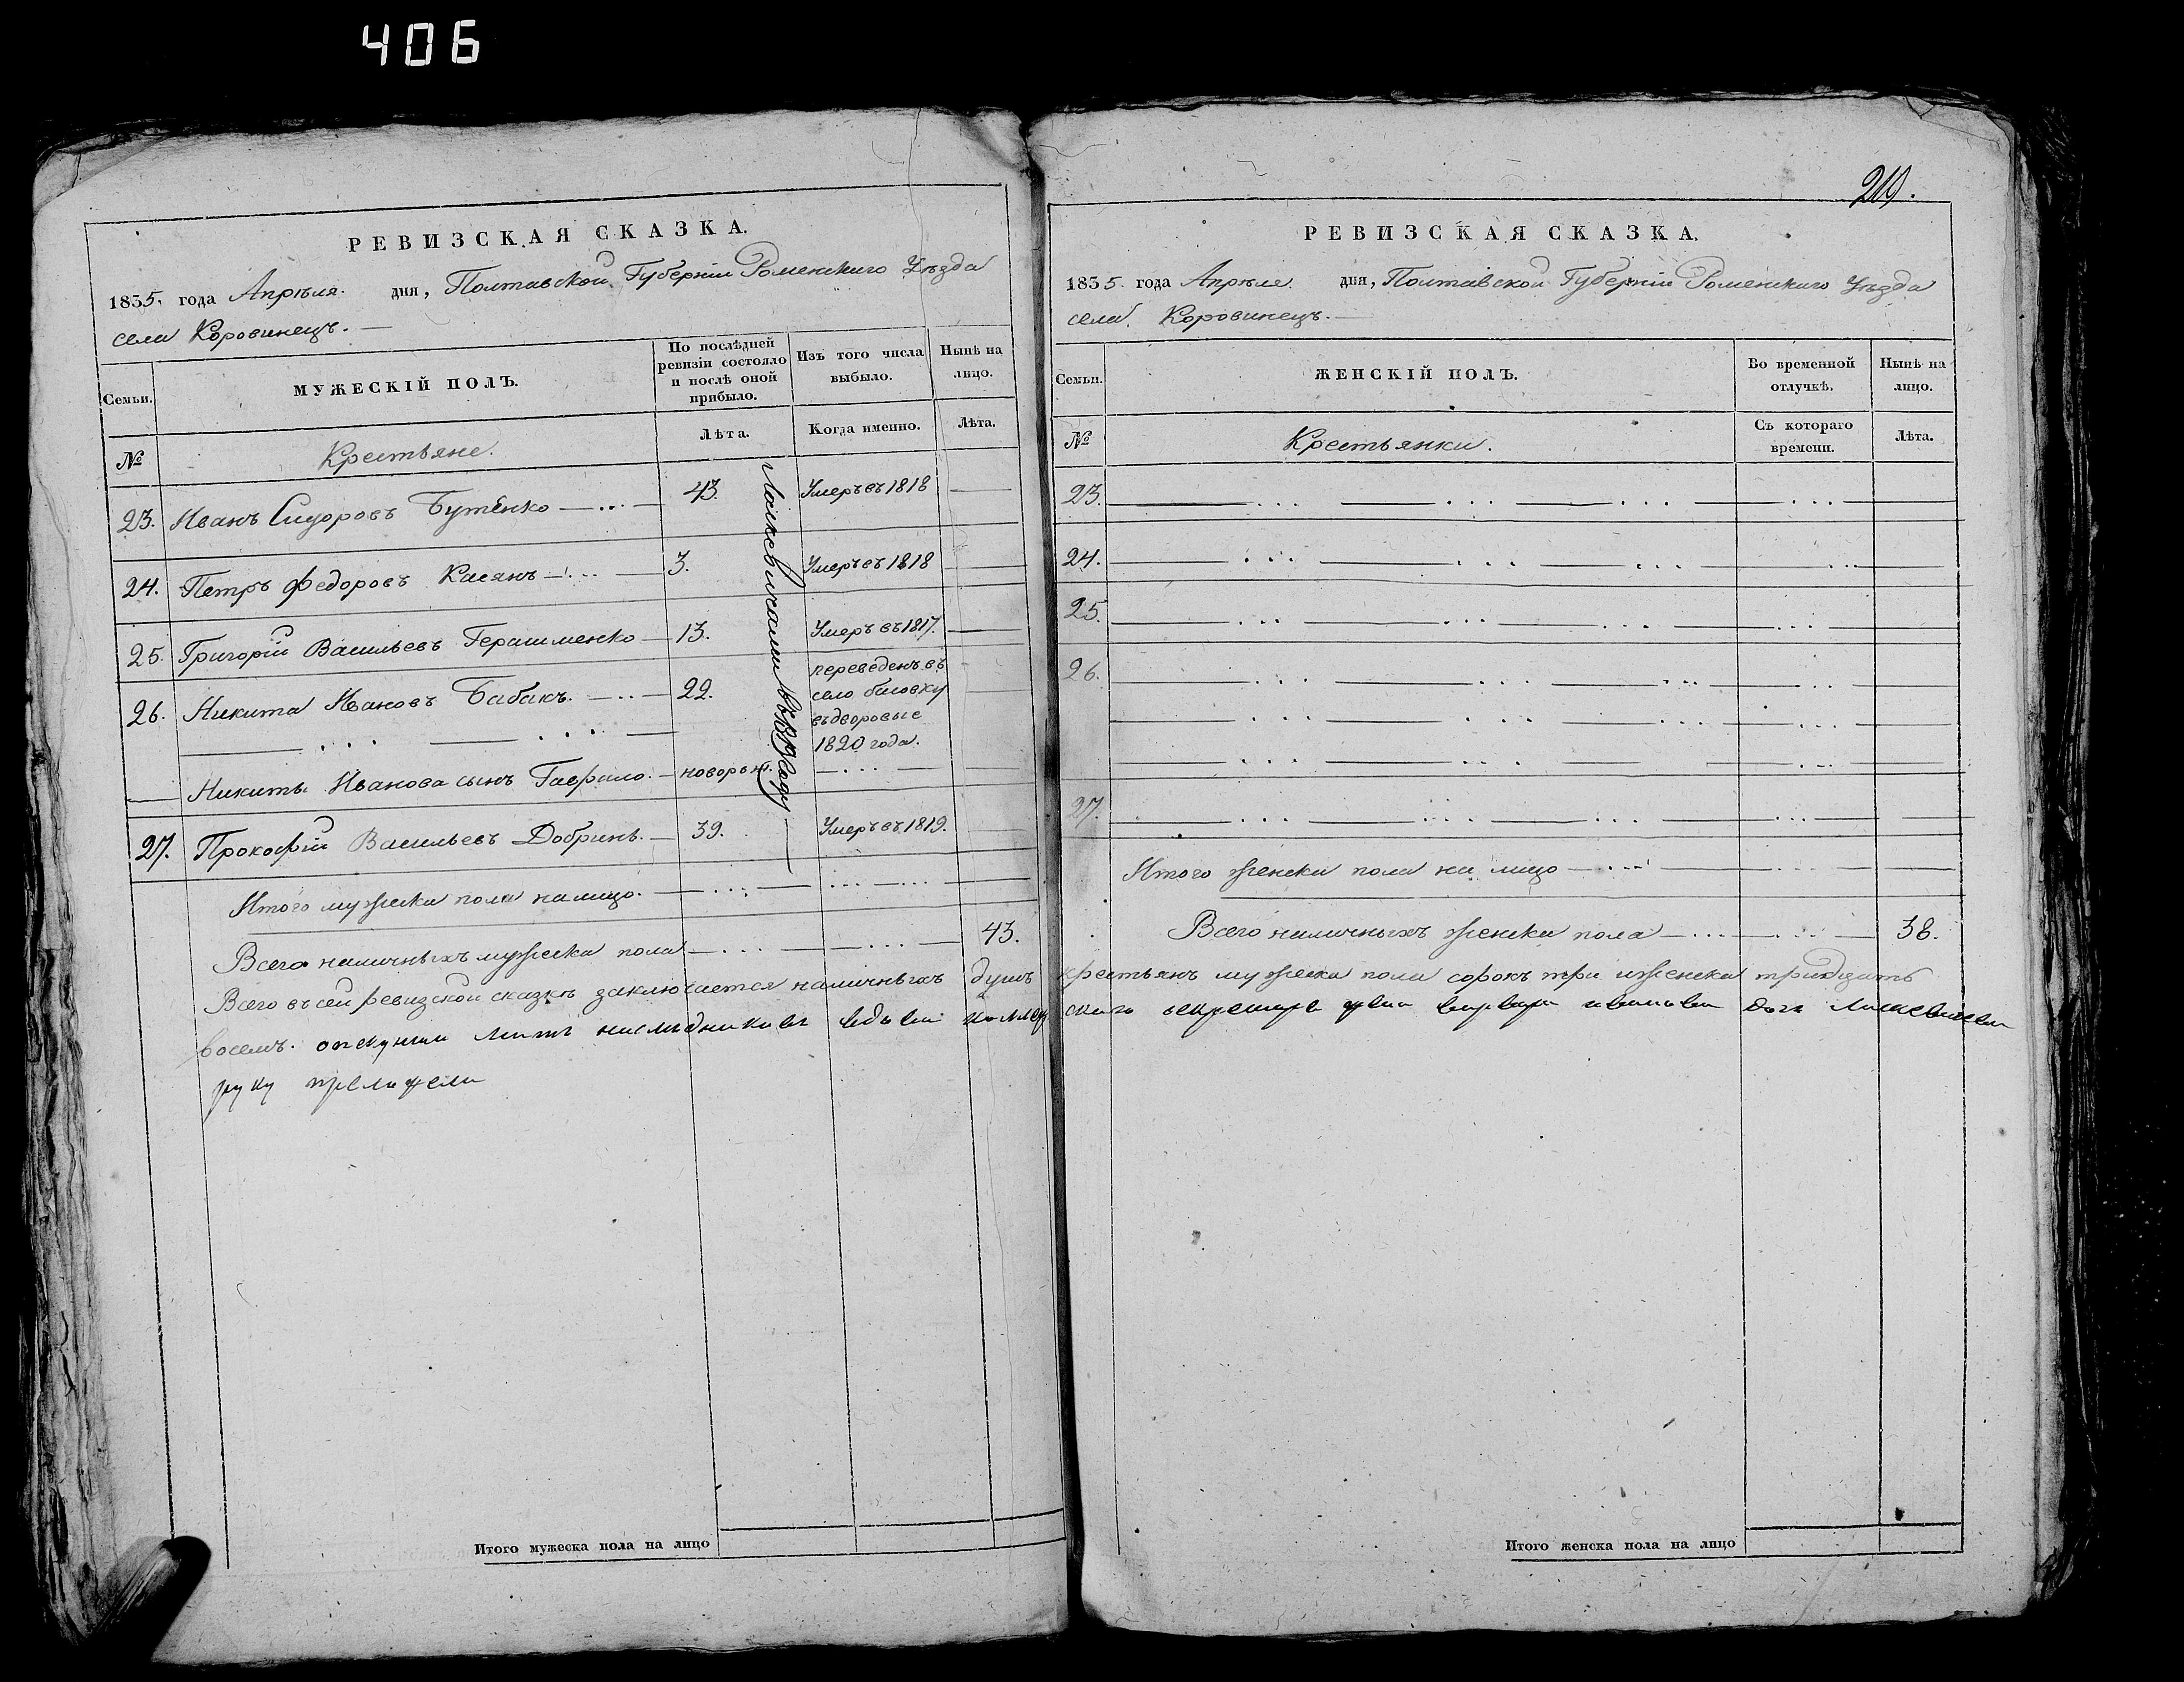 406
219.
РЕВИЗСКАЯ СКАЗКА.
1835. года Апрѣля. дня, Полтавской Губерніи Роменскаго Уѣзда
села Коровинецъ.
Семьи.
МУЖЕСКІЙ ПОЛЪ.
По послѣдней ревизіи состояло и послѣ оной прибыло.
Изъ того числа выбыло.
Нынѣ на лицо.
№
Крестьяне.
Лѣта.
Когда именно.
Лѣта.
23. Иванъ Сидоровъ Бутенко 43. Умеръ въ 1818
24. Петръ Федоровъ Касянъ 3. Умеръ въ 1818
25. Григорій Васильевъ Герашменко 13. Умеръ въ 1817.
26. Никита Ивановъ Бабакъ. 22. переведенъ въ
село
въ дворовые
1820 года.
Никиты Иванова сынъ Гаврило. новорож.
27. Прокофій Васильевъ Добринь. 39. Умеръ въ 1819.
Итого мужеска пола на лицо.
Всего наличныхъ мужеска пола 43.
Всего въ сей ревизской сказкѣ заключается наличныхъ душъ
восемъ. наследниковъ вдова
руку
Итого мужеска пола на лицо
РЕВИЗСКАЯ СКАЗКА.
1835. года Апрѣля. дня, Полтавской Губерніи Роменскаго Уѣзда
села Коровинецъ.
Семьи.
ЖЕНСКІЙ ПОЛЪ.
Во временной отлучкѣ.
Нынѣ на лицо.
№
Крестьянки.
Съ котораго времени.
Лѣта.
23.
24.
25.
26.
27.
Итого женска пола на лицо
Всего наличныхъ женска пола 38.
крестьянъ мужеска пола сорокъ три и женска тридцать
Итого женска пола на лицо